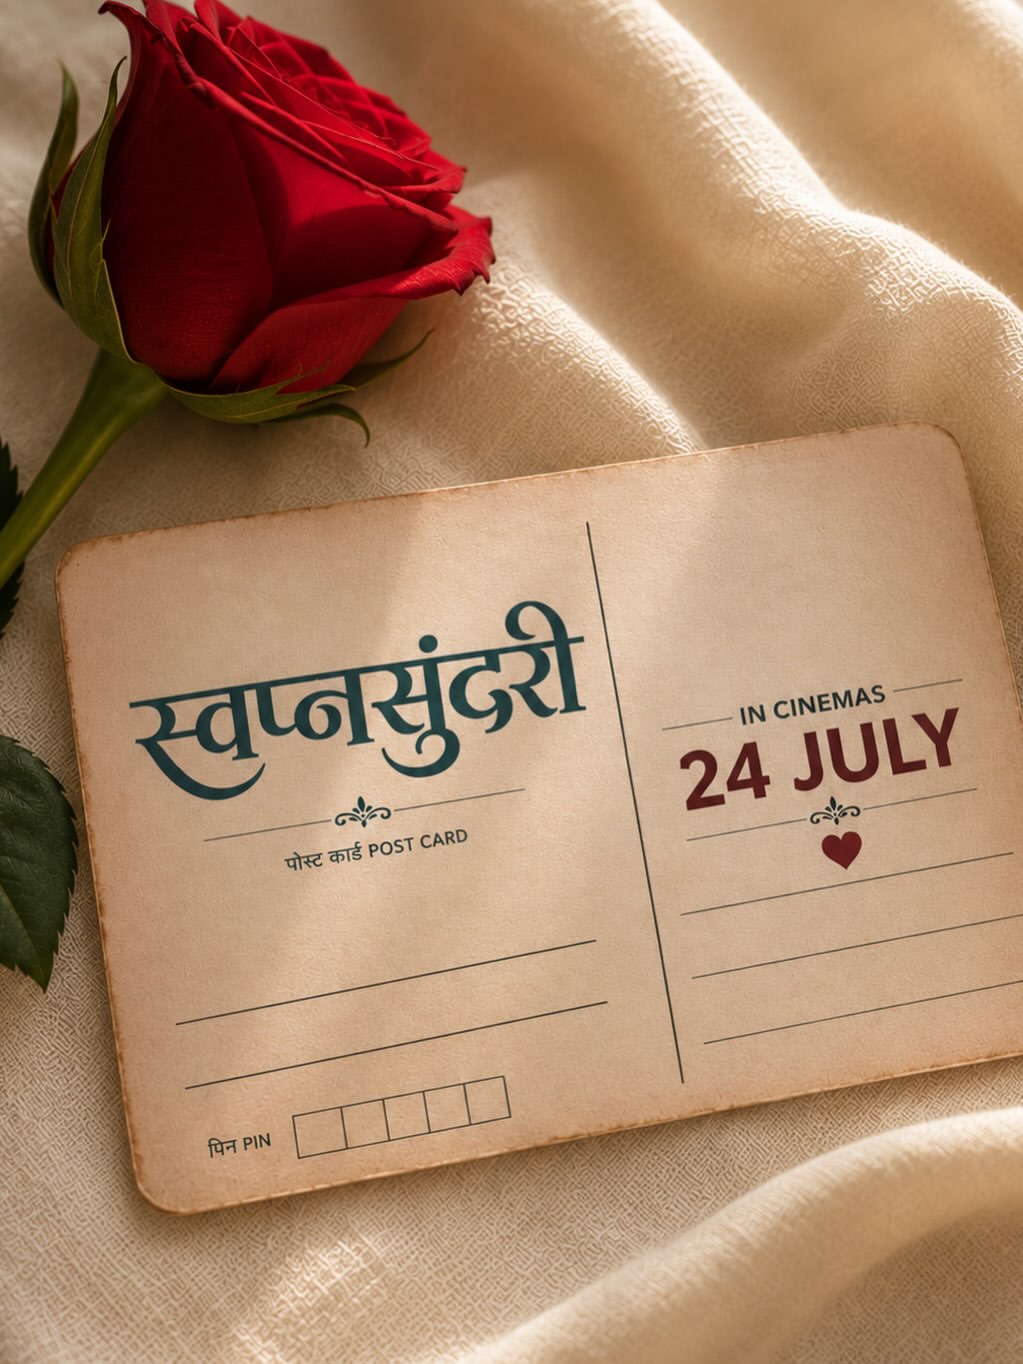 स्वप्नसुंदरी
पोस्ट कार्ड POST CARD
पिन PIN
IN CINEMAS
24 JULY